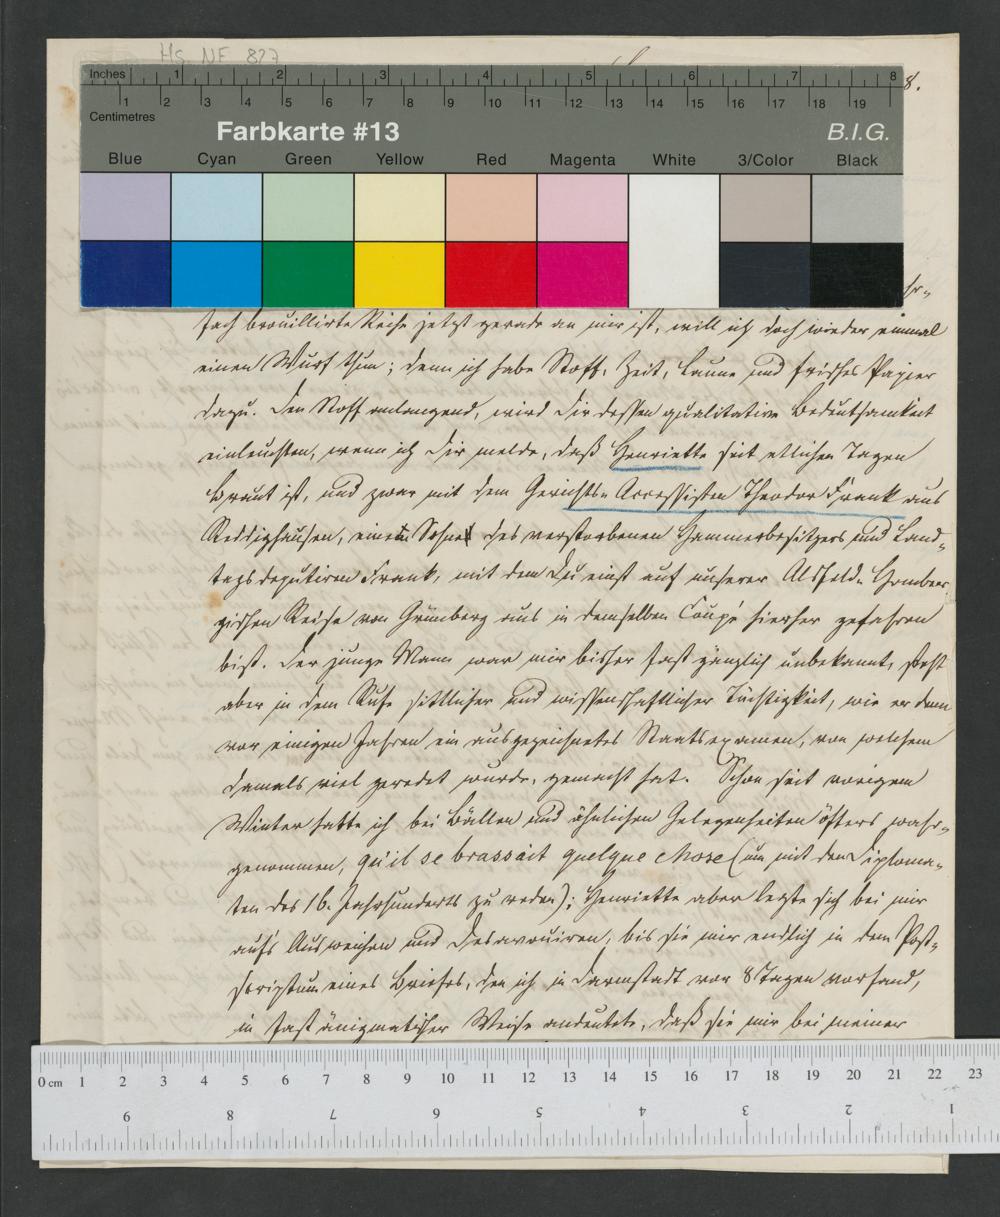 Hs. NF 827
8.
Inches 1 2 3 4 5 6 7 8
1 2 3 4 5 6 7 8 9 10 11 12 13 14 15 16 17 18 19
Centimetres
Farbkarte #13 B.I.G.
Blue Cyan Green Yellow Red Magenta White 3/Color Black
fach brouillirte Reihe jetzt gerade an mir ist, will ich doch wieder einmal
einen Wurf thun; denn ich habe Stoff, Zeit, Laune und frisches Papier
dazu. Den Stoff anlangend, wird Dir dessen qualitative Bedeutsamkeit
einleuchten, wenn ich Dir melde, daß Henriette seit etlichen Tagen
Braut ist, und zwar mit dem Gerichts-Accessisten Theodor Frank aus
Reddighausen, einem Sohne des verstorbenen Hammerbesitzers und Land-
tagsdeputirten Frank, mit dem Du einst auf unserer Alsfeld-Homber-
gischen Reise von Grünberg aus in demselben Coupé hierher gefahren
bist. Der junge Mann war mir bisher fast gänzlich unbekannt, steht
aber in dem Rufe sittlicher und wissenschaftlicher Tüchtigkeit, wie er denn
vor einigen Jahren ein ausgezeichnetes Staatsexamen, von welchem
damals viel geredet wurde, gemacht hat. Schon seit vorigem
Winter hatte ich bei Bällen und ähnlichen Gelegenheiten öfters wahr-
genommen, qu'il se brassait quelque chose (um mit den Diploma-
ten des 16. Jahrhunderts zu reden); Henriette aber legte sich bei mir
aufs Ausweichen und Desavouiren, bis sie mir endlich in dem Post-
scriptum eines Briefes, den ich in Darmstadt vor 8 Tagen vorfand,
in fast änigmatischer Weise andeutete, daß sie mir bei meiner
0 cm 1 2 3 4 5 6 7 8 9 10 11 12 13 14 15 16 17 18 19 20 21 22 23
9 8 7 6 5 4 3 2 1